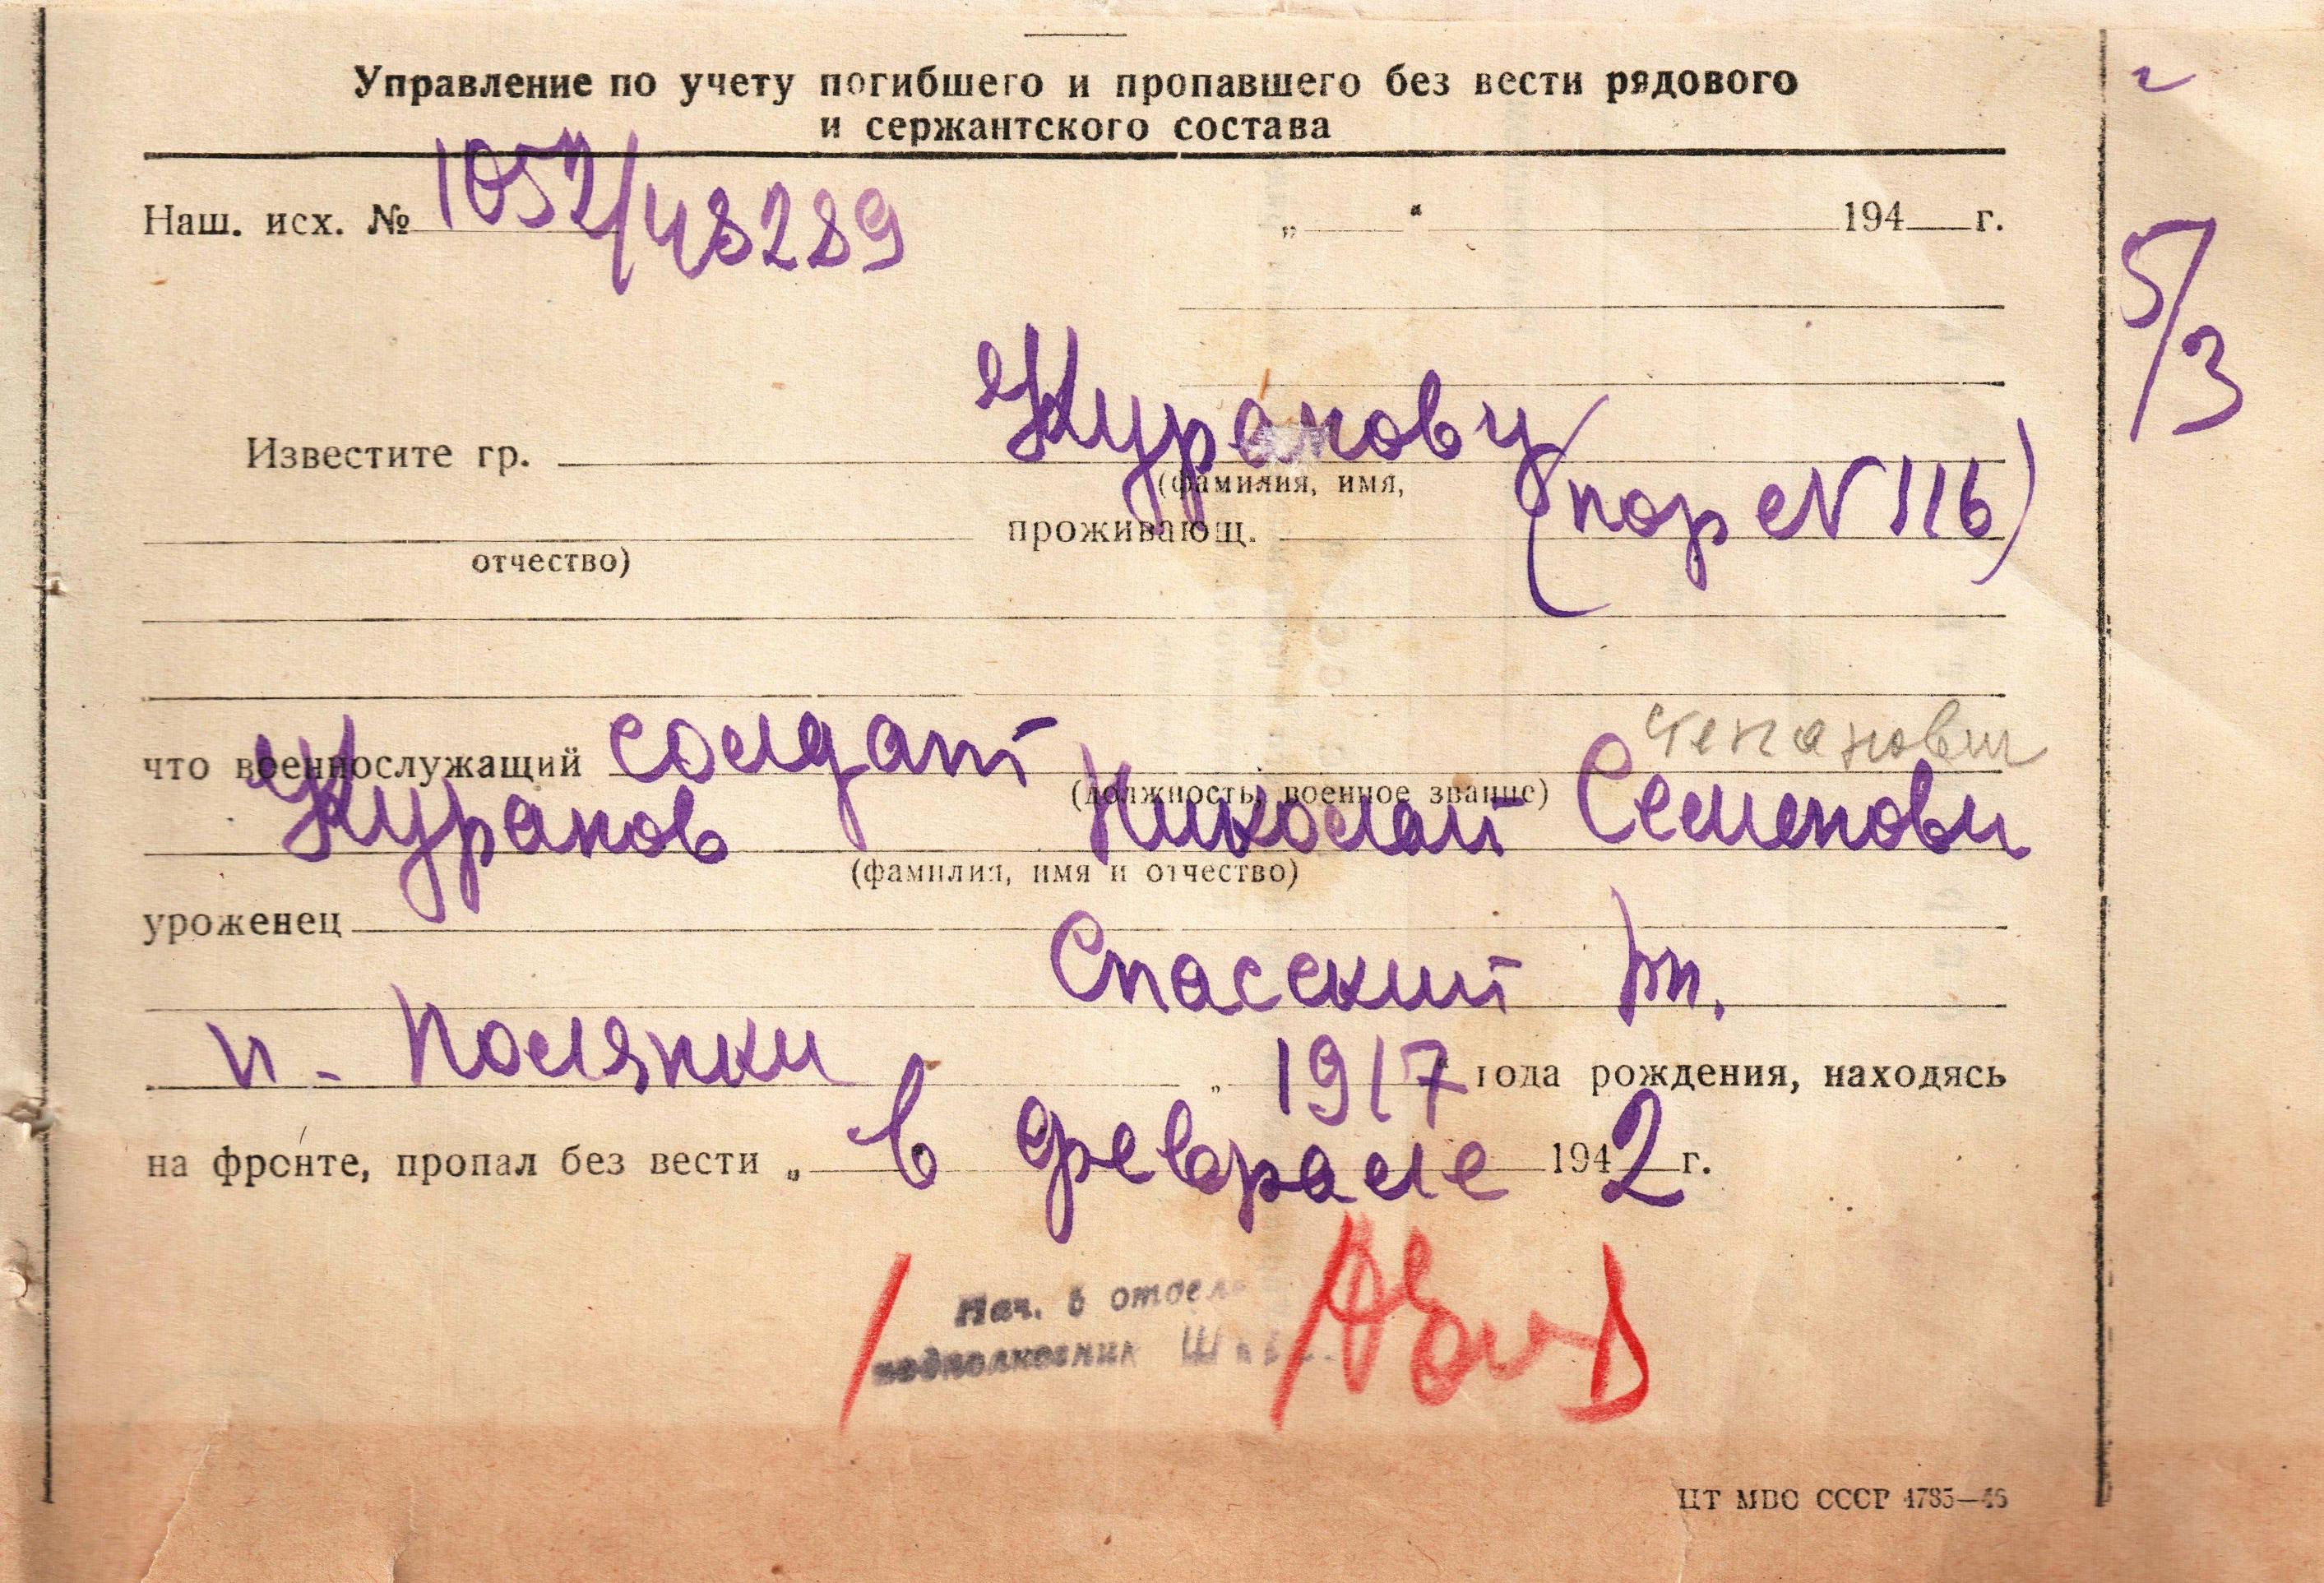 Управление по учету погибшего и пропавшего без вести рядового
и сержантского состава
г
Наш. исх. № 1052/48289 „ “ 194 г.
5/3
Известите гр. Журанову
(фамилия, имя,
проживающ. (пор №116)
отчество)
Степанович
что военнослужащий солдат
(должность, военное звание)
Журанов Николай Семенови
(фамилия, имя и отчество)
уроженец
Спасский рн.
н - Полянки „ 1917 года рождения, находясь
на фронте, пропал без вести „ в феврале 1942 г.
Нач. 6 отдел
подполковник
ЦТ МВС СССР 4785—46